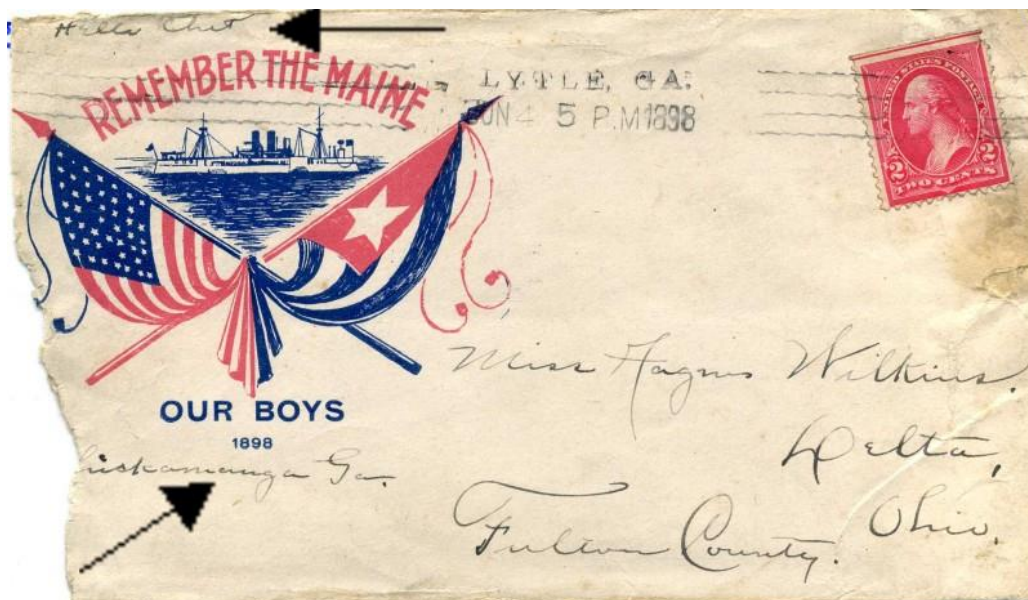 Hello Chet
REMEMBER THE MAINE
LYTLE, GA.
JUN 4 5 P.M 1898
UNITED STATES POSTAGE
2 2
TWO CENTS
OUR BOYS
1898
hickamauga Ga.
Miss Wilkins.
Delta,
Ohio.
Fulton County.